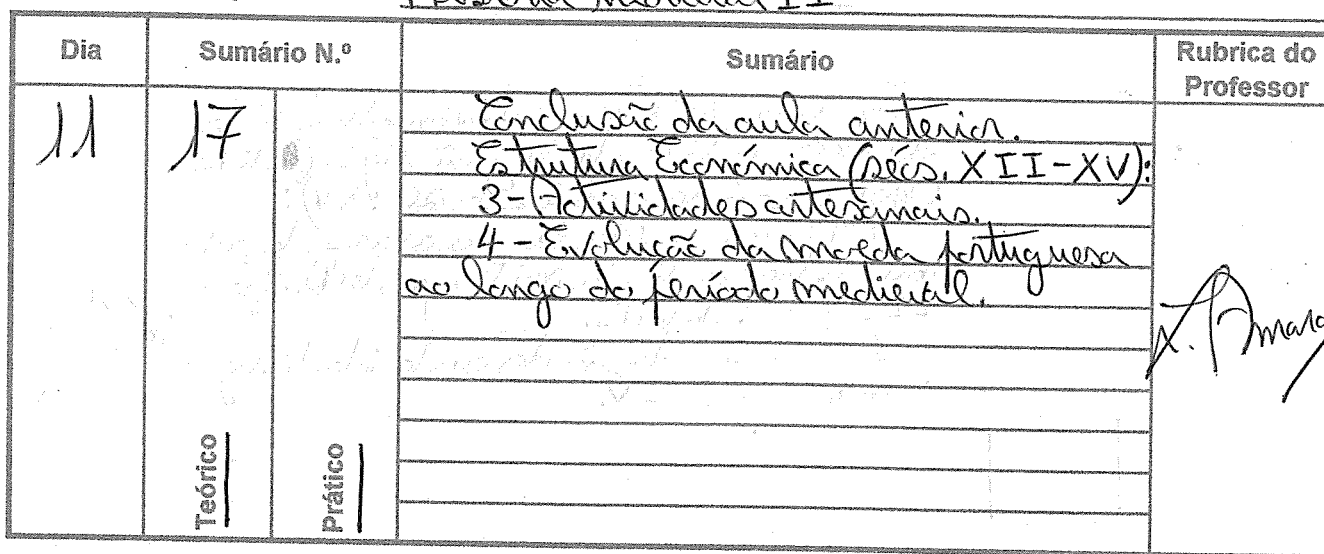 Medieval II
Dia
Sumário N.º
Sumário
Rubrica do
Professor
11
17
Conclusão da aula anterior.
Estrutura Económica (sécs. XII-XV):
3- Actividades artesanais.
4 - Evolução da moeda portuguesa
ao longo do período medieval.
L. Amaral
Teórico
Prático